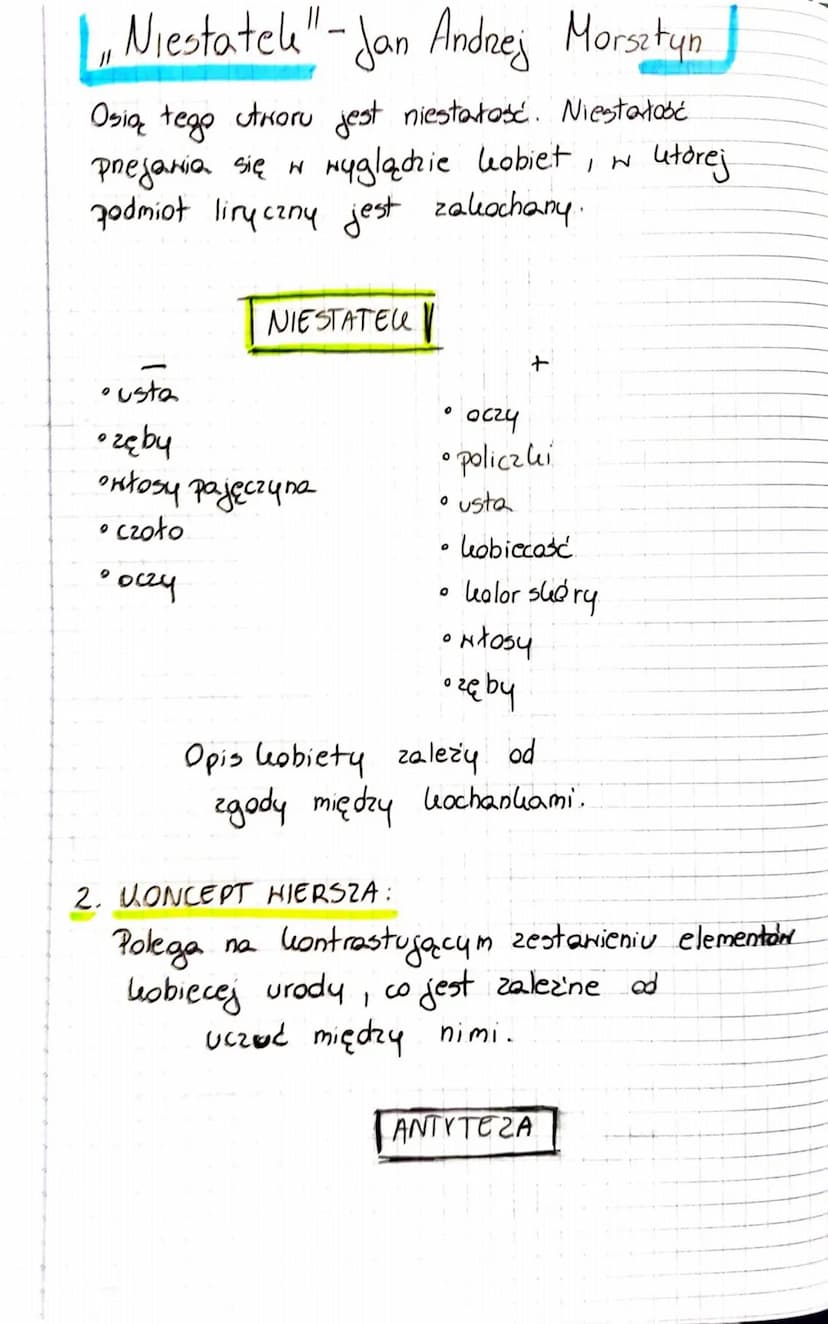 „Niestatek" - Jan Andrzej Morsztyn
Osią tego utworu jest niestałość. Niestałość
przejawia się w wyglądzie kobiet, w której
podmiot liryczny jest zakochany.
NIESTATEK
- +
• usta
• oczy
• zęby
• policzki
• włosy pajęczyna
• usta
• czoło
• kobiecość
• oczy
• kolor skóry
• włosy
• zęby
Opis kobiety zależy od
zgody między kochankami.
2. KONCEPT WIERSZA:
Polega na kontrastującym zestawieniu elementów
kobiecej urody, co jest zależne od
uczuć między nimi.
ANTYTEZA